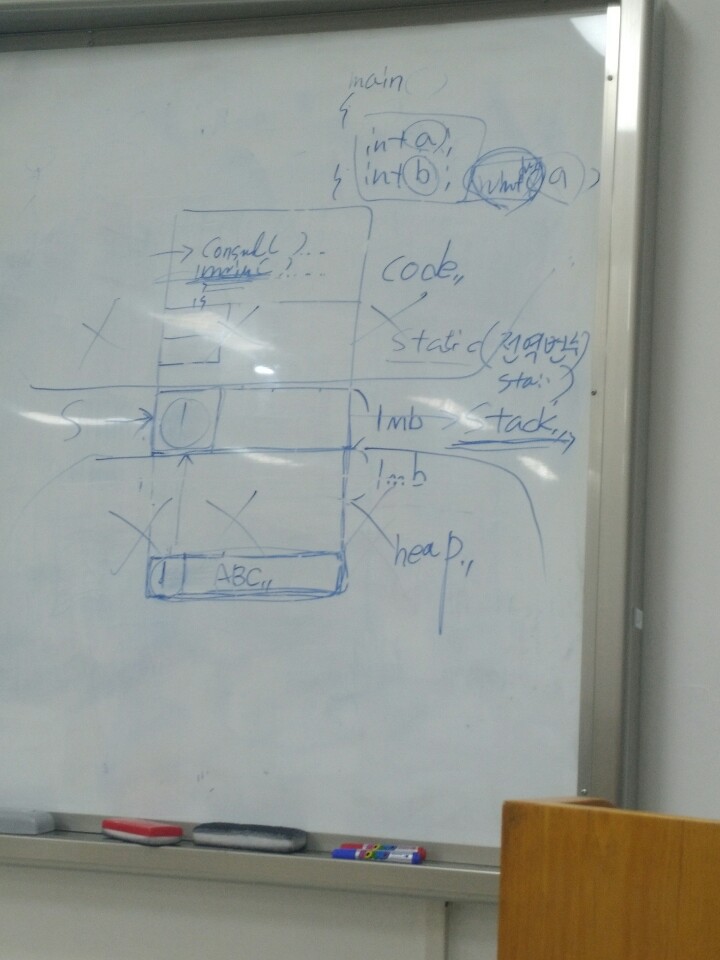 main()
{
int a;
int b;
}
(a)
→ Consul( )...
main( )...
code,,
static (전역변수
S → 1
1mb
Stack,,
1mb
heap,,
1 ABC,,